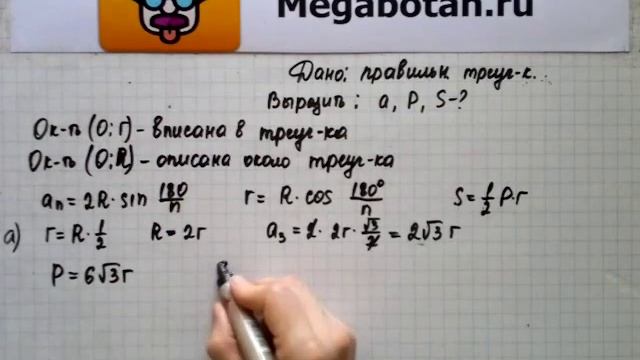 Megabotan.ru
Дано: правильн треуг-к.
Выразить: a, P, S-?
Ок-ть (O; r) - вписана в треуг-ка
Ок-ть (O; R) - описана около треуг-ка
aₙ = 2R · sin 180/n r = R · cos 180°/n S = 1/2 P · r
а) r = R · 1/2 R = 2r a₃ = 2 · 2r · √3/2 = 2√3 r
P = 6√3 r